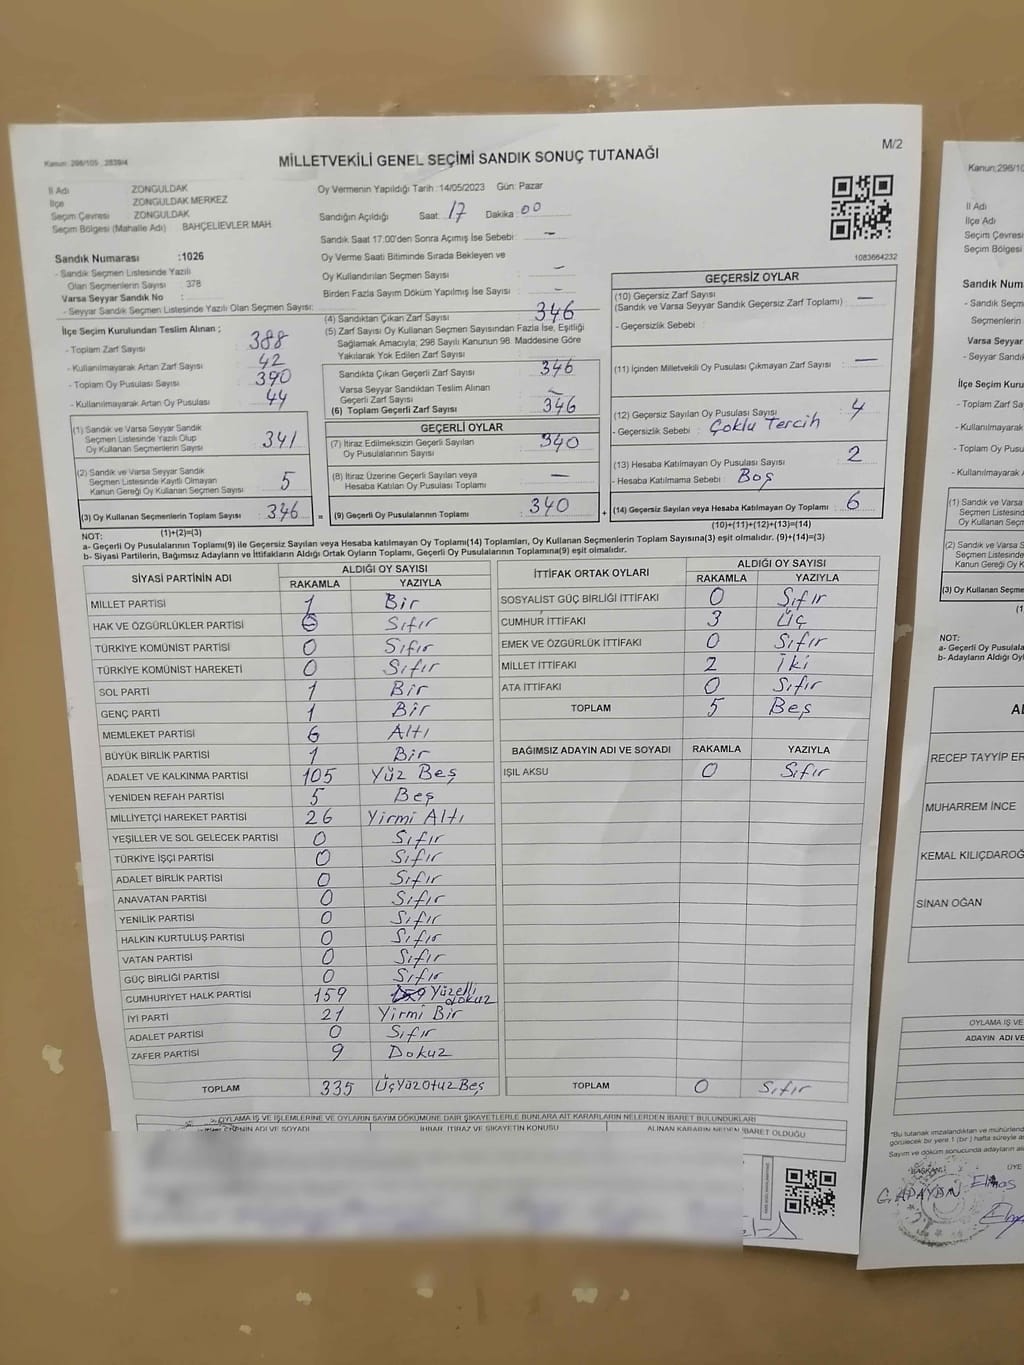 Kanun: 298/105 , 2839/4
MİLLETVEKİLİ GENEL SEÇİMİ SANDIK SONUÇ TUTANAĞI
M/2
İl Adı ZONGULDAK
İlçe ZONGULDAK MERKEZ
Seçim Çevresi ZONGULDAK
Seçim Bölgesi (Mahalle Adı) BAHÇELİEVLER MAH
Sandık Numarası :1026
- Sandık Seçmen Listesinde Yazılı
Olan Seçmenlerin Sayısı : 378
Varsa Seyyar Sandık No :
- Seyyar Sandık Seçmen Listesinde Yazılı Olan Seçmen Sayısı:
İlçe Seçim Kurulundan Teslim Alınan ;
- Toplam Zarf Sayısı : 388
- Kullanılmayarak Artan Zarf Sayısı : 42
- Toplam Oy Pusulası Sayısı : 390
- Kullanılmayarak Artan Oy Pusulası : 44
(1) Sandık ve Varsa Seyyar Sandık
Seçmen Listesinde Yazılı Olup
Oy Kullanan Seçmenlerin Sayısı : 341
(2) Sandık ve Varsa Seyyar Sandık
Seçmen Listesinde Kayıtlı Olmayan
Kanun Gereği Oy Kullanan Seçmen Sayısı : 5
(3) Oy Kullanan Seçmenlerin Toplam Sayısı : 346
(1)+(2)=(3)
Oy Vermenin Yapıldığı Tarih :14/05/2023 Gün: Pazar
Sandığın Açıldığı Saat: 17 Dakika: 00
Sandık Saat 17.00'den Sonra Açımış İse Sebebi: —
Oy Verme Saati Bitiminde Sırada Bekleyen ve
Oy Kullandırılan Seçmen Sayısı : —
Birden Fazla Sayım Döküm Yapılmış İse Sayısı : —
(4) Sandıktan Çıkan Zarf Sayısı : 346
(5) Zarf Sayısı Oy Kullanan Seçmen Sayısından Fazla İse, Eşitliği
Sağlamak Amacıyla; 298 Sayılı Kanunun 98. Maddesine Göre
Yakılarak Yok Edilen Zarf Sayısı :
Sandıkta Çıkan Geçerli Zarf Sayısı : 346
Varsa Seyyar Sandıktan Teslim Alınan
Geçerli Zarf Sayısı : —
(6) Toplam Geçerli Zarf Sayısı : 346
GEÇERLİ OYLAR
(7) İtiraz Edilmeksizin Geçerli Sayılan
Oy Pusulalarının Sayısı : 340
(8) İtiraz Üzerine Geçerli Sayılan veya
Hesaba Katılan Oy Pusulası Toplamı : —
= (9) Geçerli Oy Pusulalarının Toplamı : 340 +
1083664232
GEÇERSİZ OYLAR
(10) Geçersiz Zarf Sayısı : —
(Sandık ve Varsa Seyyar Sandık Geçersiz Zarf Toplamı)
- Geçersizlik Sebebi :
(11) İçinden Milletvekili Oy Pusulası Çıkmayan Zarf Sayısı : —
(12) Geçersiz Sayılan Oy Pusulası Sayısı : 4
- Geçersizlik Sebebi : Çoklu Tercih
(13) Hesaba Katılmayan Oy Pusulası Sayısı : 2
- Hesaba Katılmama Sebebi : Boş
(14) Geçersiz Sayılan veya Hesaba Katılmayan Oy Toplamı : 6
(10)+(11)+(12)+(13)=(14)
NOT:
a- Geçerli Oy Pusulalarının Toplamı(9) ile Geçersiz Sayılan veya Hesaba katılmayan Oy Toplamı(14) Toplamları, Oy Kullanan Seçmenlerin Toplam Sayısına(3) eşit olmalıdır. (9)+(14)=(3)
b- Siyasi Partilerin, Bağımsız Adayların ve İttifakların Aldığı Ortak Oyların Toplamı, Geçerli Oy Pusulalarının Toplamına(9) eşit olmalıdır.
SİYASİ PARTİNİN ADI ALDIĞI OY SAYISI
RAKAMLA YAZIYLA
MİLLET PARTİSİ 1 Bir
HAK VE ÖZGÜRLÜKLER PARTİSİ 0 Sıfır
TÜRKİYE KOMÜNİST PARTİSİ 0 Sıfır
TÜRKİYE KOMÜNİST HAREKETİ 0 Sıfır
SOL PARTİ 1 Bir
GENÇ PARTİ 1 Bir
MEMLEKET PARTİSİ 6 Altı
BÜYÜK BİRLİK PARTİSİ 1 Bir
ADALET VE KALKINMA PARTİSİ 105 Yüz Beş
YENİDEN REFAH PARTİSİ 5 Beş
MİLLİYETÇİ HAREKET PARTİSİ 26 Yirmi Altı
YEŞİLLER VE SOL GELECEK PARTİSİ 0 Sıfır
TÜRKİYE İŞÇİ PARTİSİ 0 Sıfır
ADALET BİRLİK PARTİSİ 0 Sıfır
ANAVATAN PARTİSİ 0 Sıfır
YENİLİK PARTİSİ 0 Sıfır
HALKIN KURTULUŞ PARTİSİ 0 Sıfır
VATAN PARTİSİ 0 Sıfır
GÜÇ BİRLİĞİ PARTİSİ 0 Sıfır
CUMHURİYET HALK PARTİSİ 159 159 Yüzelli dokuz
İYİ PARTİ 21 Yirmi Bir
ADALET PARTİSİ 0 Sıfır
ZAFER PARTİSİ 9 Dokuz
TOPLAM 335 ÜçYüzOtuzBeş
İTTİFAK ORTAK OYLARI ALDIĞI OY SAYISI
RAKAMLA YAZIYLA
SOSYALİST GÜÇ BİRLİĞİ İTTİFAKI 0 Sıfır
CUMHUR İTTİFAKI 3 Üç
EMEK VE ÖZGÜRLÜK İTTİFAKI 0 Sıfır
MİLLET İTTİFAKI 2 İki
ATA İTTİFAKI 0 Sıfır
TOPLAM 5 Beş
BAĞIMSIZ ADAYIN ADI VE SOYADI RAKAMLA YAZIYLA
IŞIL AKSU 0 Sıfır
TOPLAM 0 Sıfır
OYLAMA İŞ VE İŞLEMLERİNE VE OYLARIN SAYIM DÖKÜMÜNE DAİR ŞİKAYETLERLE BUNLARA AİT KARARLARIN NELERDEN İBARET BULUNDUKLARI
ADI VE SOYADI İHBAR, İTİRAZ VE ŞİKAYETİN KONUSU ALINAN KARARIN NEDEN İBARET OLDUĞU
Kanun:298/10
İl Adı
İlçe Adı
Seçim Çevresi
Seçim Bölgesi
Sandık Num
- Sandık Seçm
Seçmenlerin
Varsa Seyyar
- Seyyar Sandık
İlçe Seçim Ku
- Toplam Zarf Sa
- Kullanılmayara
- Toplam Oy Pusu
- Kullanılmayarak A
(1) Sandık ve Varsa
Seçmen Listesi
Oy Kullanan
(2) Sandık ve Varsa S
Seçmen Listesinde
Kanun Gereği Oy K
(3) Oy Kullanan Seçmen
(1
NOT:
a- Geçerli Oy Pusulala
b- Adayların Aldığı Oyl
AD
RECEP TAYYİP ER
MUHARREM İNCE
KEMAL KILIÇDAROĞ
SİNAN OĞAN
OYLAMA İŞ VE
ADAYIN ADI VE
"Bu tutanak imzalandıktan ve mühürlend
görülecek bir yere 1 (bir ) hafta süreyle as
Sayım ve döküm sonucunda adayların al
BAŞKAN ÜYE
G. APAYDIN Elmas